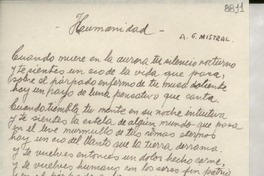 8811
- Humanidad -
A. G. MISTRAL.
Cuando muere en la aurora tu silencio nocturno
y te sientes un eco de la vida, que pasa,
sobre el párpado enfermo de tu musa doliente
hay un rayo de luna pensativo que canta.
Cuando tiembla tu mente en su noche intuitiva
y te sientes la estela de algún mundo que posa
en el leve murmullo de tus remas eternos
hay un eco del llanto que la tierra derrama.
y te vuelves entonces un dolor hecho carne,
y te vuelves humano y